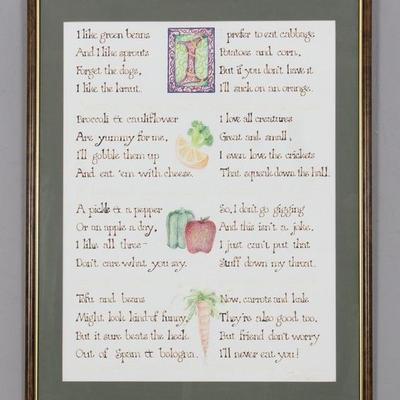 I like green beans
And I like sprouts
Forget the dogs,
I like the kraut.
Broccoli & cauliflower
Are yummy for me,
I'll gobble them up
And eat 'em with cheese.
A pickle & a pepper
Or an apple a day,
I like all three-
Don't care what you say.
Tofu and beans
Might look kind of funny,
But it sure beats the heck
Out of Spam & bologna.
I prefer to eat cabbage
Potatoes and corn,
But if you don't have it
I'll suck on an orange.
I love all creatures
Great and small,
I even love the crickets
That squeak down the hall.
So, I don't go gigging
And this isn't a joke,
I just can't put that
Stuff down my throat.
Now, carrots and kale
They're also good too,
But friend don't worry
I'll never eat you!